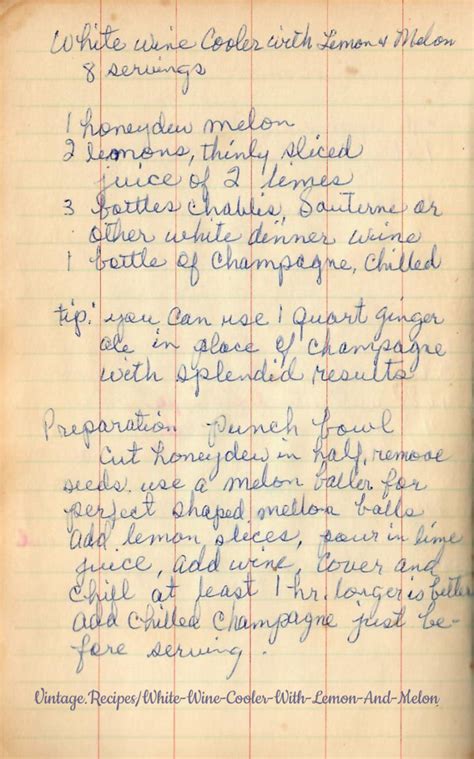 White Wine Cooler with Lemon & Melon
8 servings
1 honeydew melon
2 lemons, thinly sliced
juice of 2 limes
3 bottles Chablis, Sauterne or
other white dinner wine
1 bottle of Champagne, chilled
tip: you can use 1 quart ginger
ale in place of champagne
with splendid results
Preparation Punch bowl
Cut honeydew in half, remove
seeds. use a melon baller for
perfect shaped mellon balls
add lemon slices, pour in lime
juice, add wine, Cover and
chill at least 1 hr. longer is better
add chilled Champagne just be-
fore serving.
Vintage.Recipes/White-Wine-Cooler-With-Lemon-And-Melon